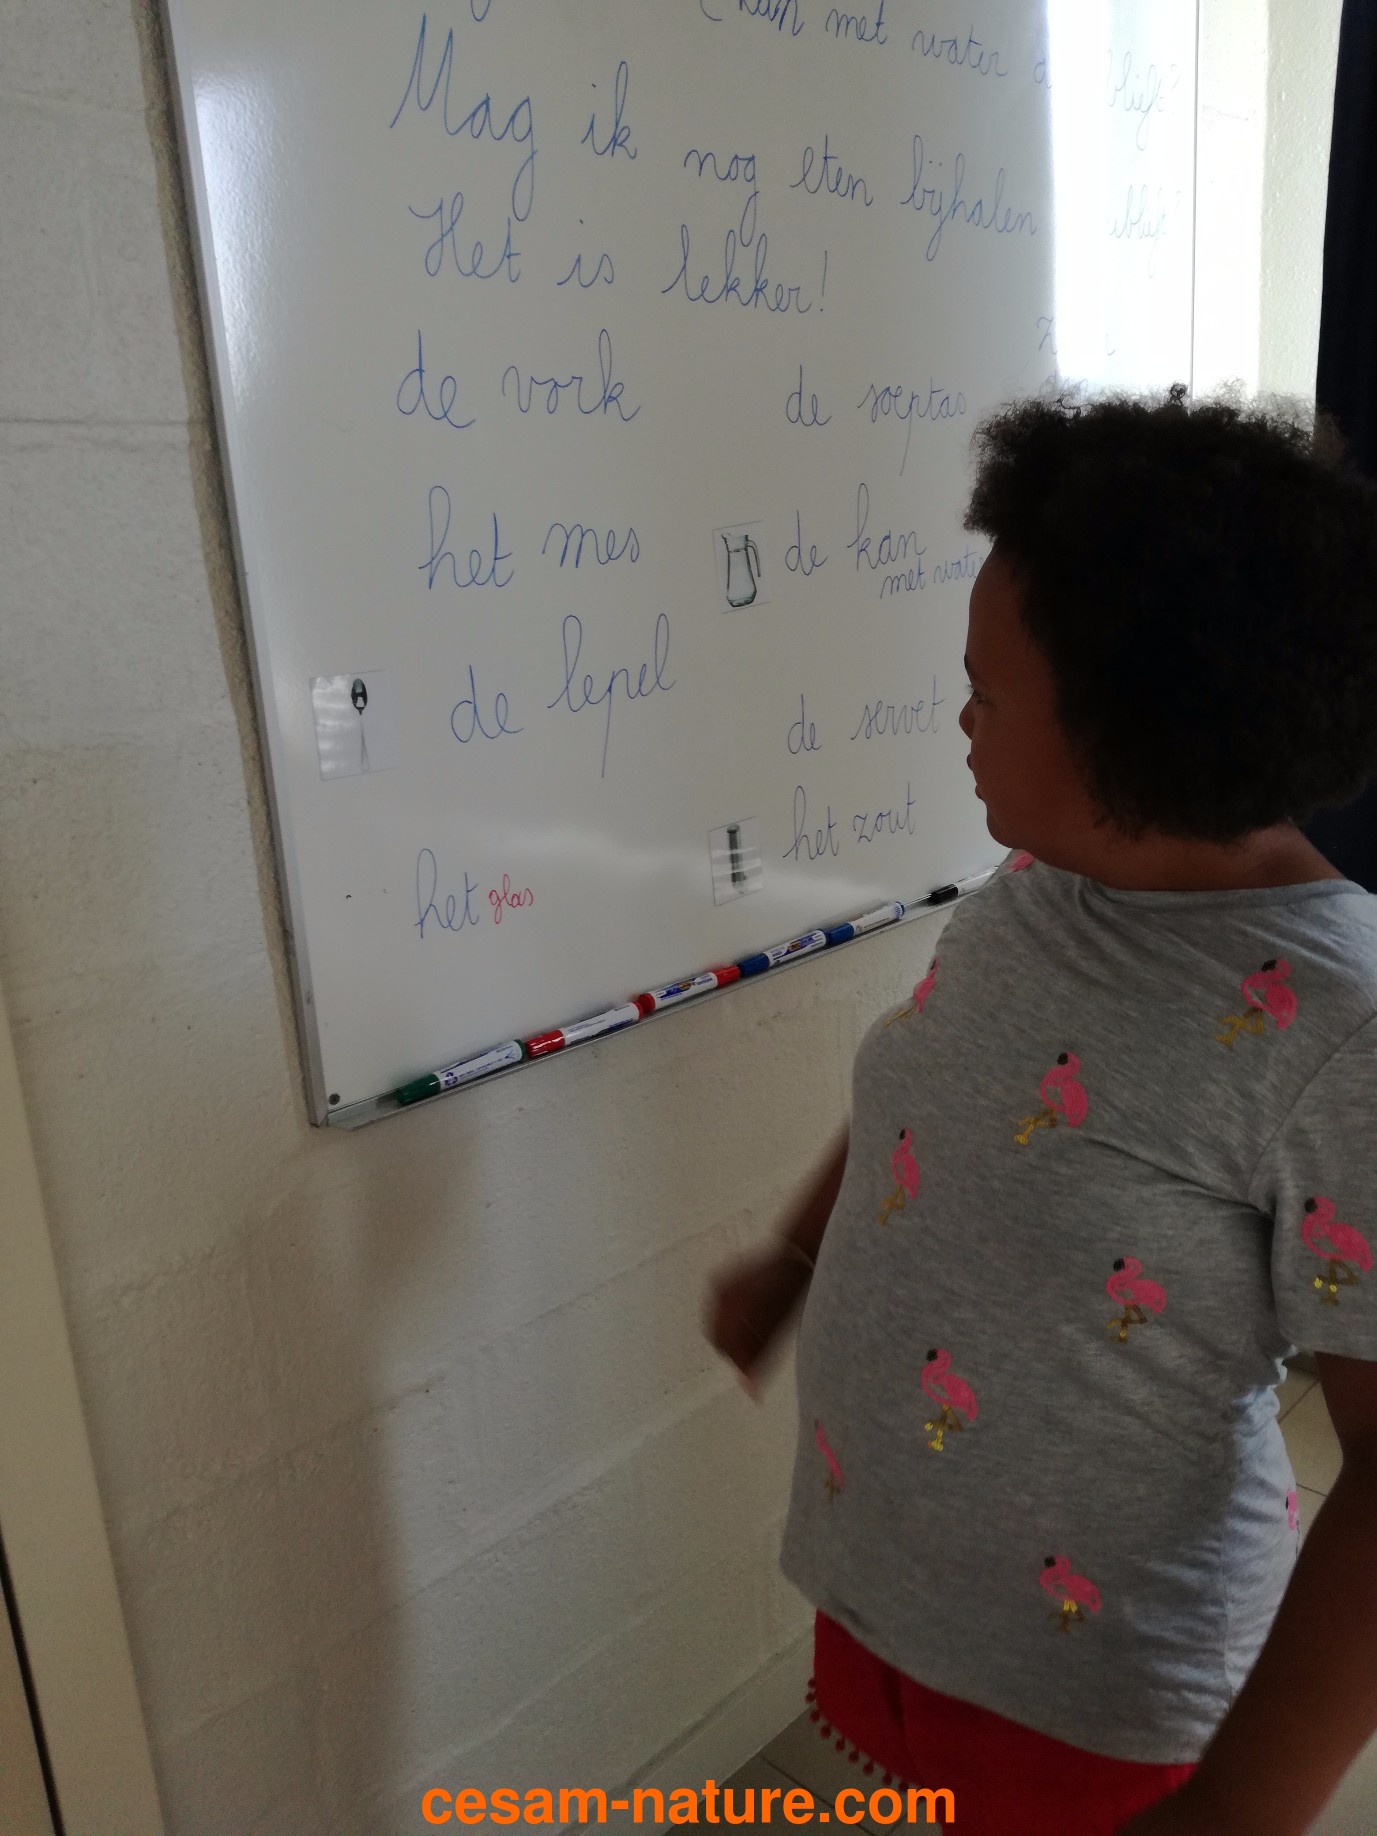 kan met water
Mag ik nog eten bijhalen
Het is lekker!
de vork
de soeptas
het mes
de kan
met water
de lepel
de servet
het zout
het glas
cesam-nature.com